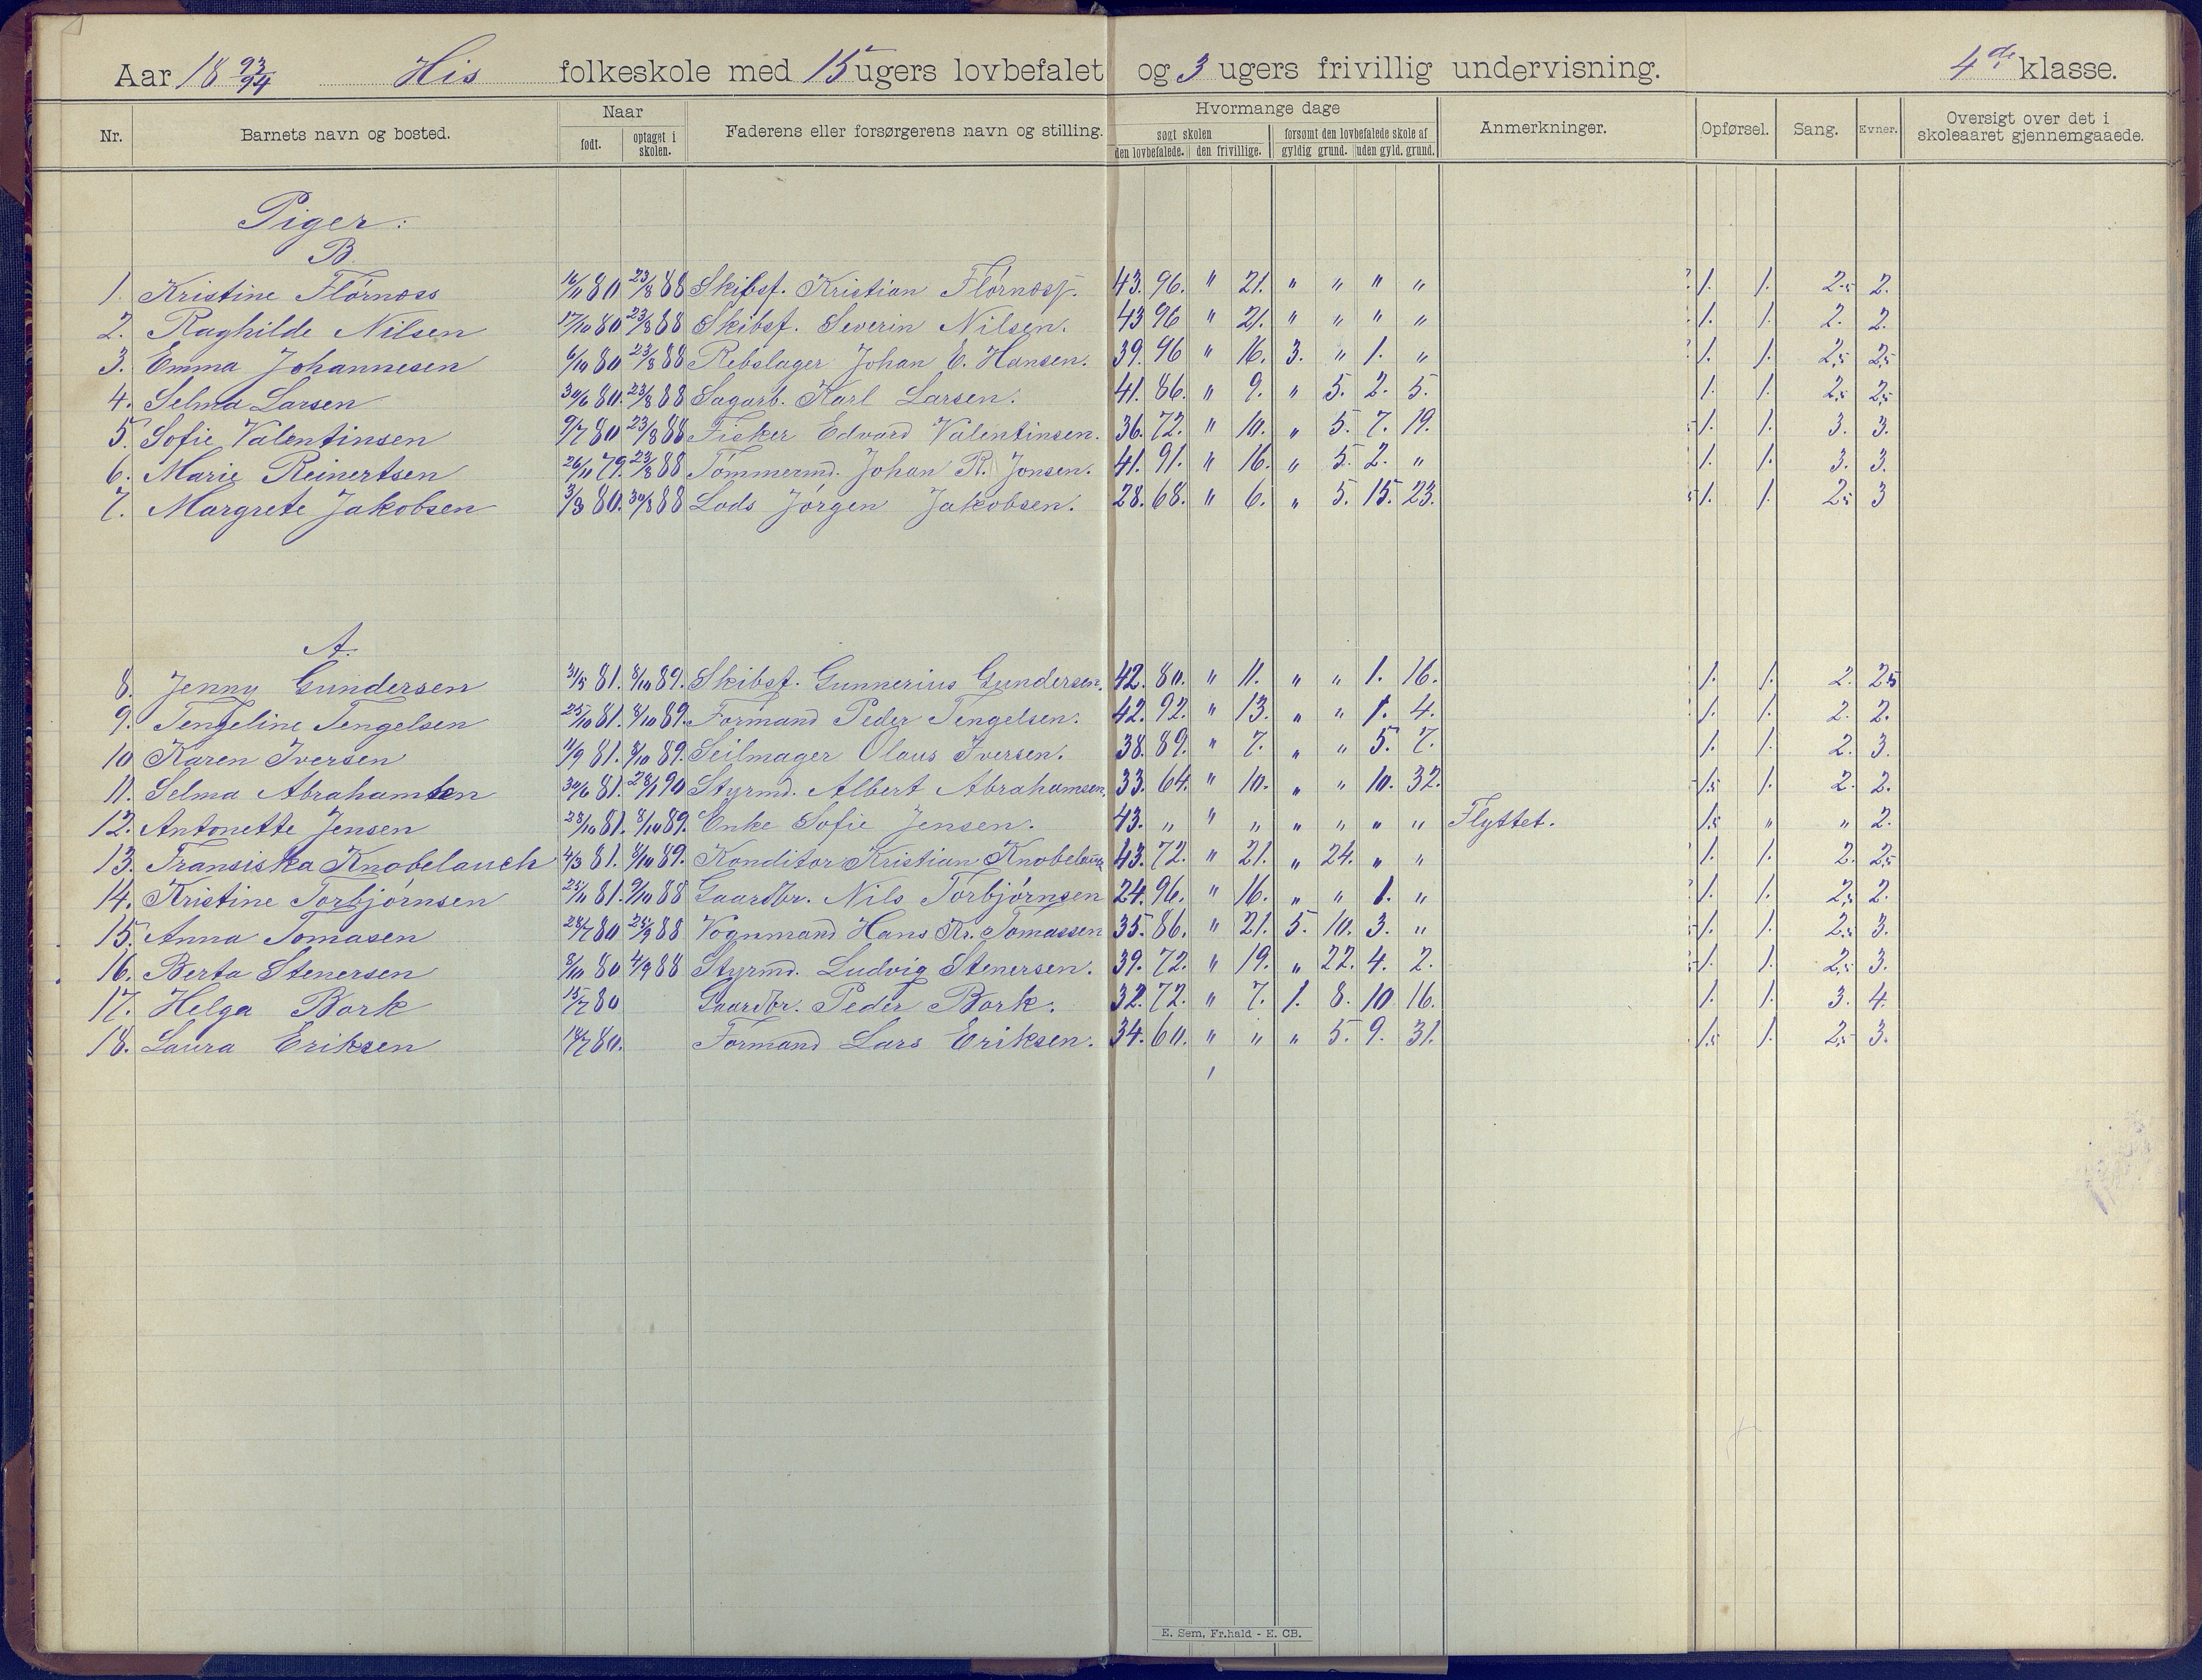 Aar 18 93/94 His folkeskole med 15 ugers lovbefalet og 3 ugers frivillig undervisning. 4de klasse.
Nr. Barnets navn og bosted. Naar født. optaget i skolen. Faderens eller forsørgerens navn og stilling. Hvormange dage søgt skolen den lovbefalede. den frivillige. forsømt den lovbefalede skole af gyldig grund. uden gyld. grund. Anmerkninger. Opførsel. Sang. Evner. Oversigt over det i skoleaaret gjennemgaaede.
Piger:
B.
1. Kristine Flørnæss 16/11 80 23/8 88 Skibsf. Kristian Flørnæss. 43. 96. " 21. " " " " 1. 1. 2.5 2.
2. Raghilde Nilsen 17/10 80 23/8 88 Skibsf. Severin Nilsen. 43 96 " 21. " " " " 1. 1. 2. 2.
3. Emma Johannesen 6/10 80 23/8 88 Rebslager Johan E. Hansen. 39. 96 " 16. 3. " 1. " 1. 1. 2,5 2,5
4. Selma Larsen 30/6 80. 23/8 88 Sagarb. Karl Larsen. 41. 86. " 9. " 5. 2. 5. 1. 1. 2,5 2,5
5. Sofie Valentinsen 9/7 80 23/8 88 Fisker Edvard Valentinsen. 36. 72. " 10. " 5. 7. 19. 1. 1. 3. 3.
6. Marie Reinertsen 26/11 79. 23/8 88 Tømmermd. Johan R. Jonsen. 41. 91. " 16. " 5. 2. " 1. 1. 3. 3.
7. Margrete Jakobsen 3/3 80. 30/8 88 Lods Jørgen Jakobsen. 28. 68. " 6. " 5. 15. 23. 1. 1. 2,5 3
A.
8. Jenny Gundersen 31/5 81. 8/10 89. Skibsf. Gunnerius Gundersen. 42. 80. " 11. " " 1. 16. 1. 1. 2. 2,5
9. Tengeline Tengelsen 25/10 81. 8/10 89. Formand Peder Tengelsen. 42. 92. " 13. " " 1. 4. 1. 1. 2. 2.
10 Karen Iversen 11/9 81. 8/10 89. Seilmager Olaus Iversen. 38. 89. " 7. " " 5. 7. 1. 1. 2. 3.
11. Selma Abrahamsen 30/6 81. 28/1 90 Styrmd. Albert Abrahamsen. 33. 64. " 10. " " 10. 32. 1.5 1. 2. 2.
12. Antonette Jensen 28/10 81. 8/10 89. Enke Sofie Jensen. 43. " " " " " " " Flyttet. 1.5 " " 2.
13. Fransiska Knobelauch 4/3 81. 8/10 89. Konditor Kristian Knobelauch 43. 72. " 21. " 24. " " 1. 1. 2. 2,5
14. Kristine Torbjørnsen 25/11 81. 9/10 88 Gaardbr. Nils Torbjørnsen 24. 96. " 16. " " 1. " 1. 1. 2,5 2.
15. Anna Tomasen 28/7 80 25/9 88 Vognmand Hans Kr. Tomassen 35. 86. " 21. 5. 10. 3. " 1. 1. 2,5 3.
16. Berta Stenersen 8/10 80 4/9 88 Styrmd. Ludvig Stenersen. 39. 72. " 19. " 22. 4. 2. 1. 1. 2,5 3.
17. Helga Bork 15/7 80 Gaardbr. Peder Bork. 32. 72. " 7. 1. 8. 10 16. 1. 1. 3. 4.
18. Laura Eriksen 18/7 80. Formand Lars Eriksen. 34. 60. " " " 5. 9. 31. 1.5 1. 2,5 3.
E. Sem, Fr.hald - E. CB.